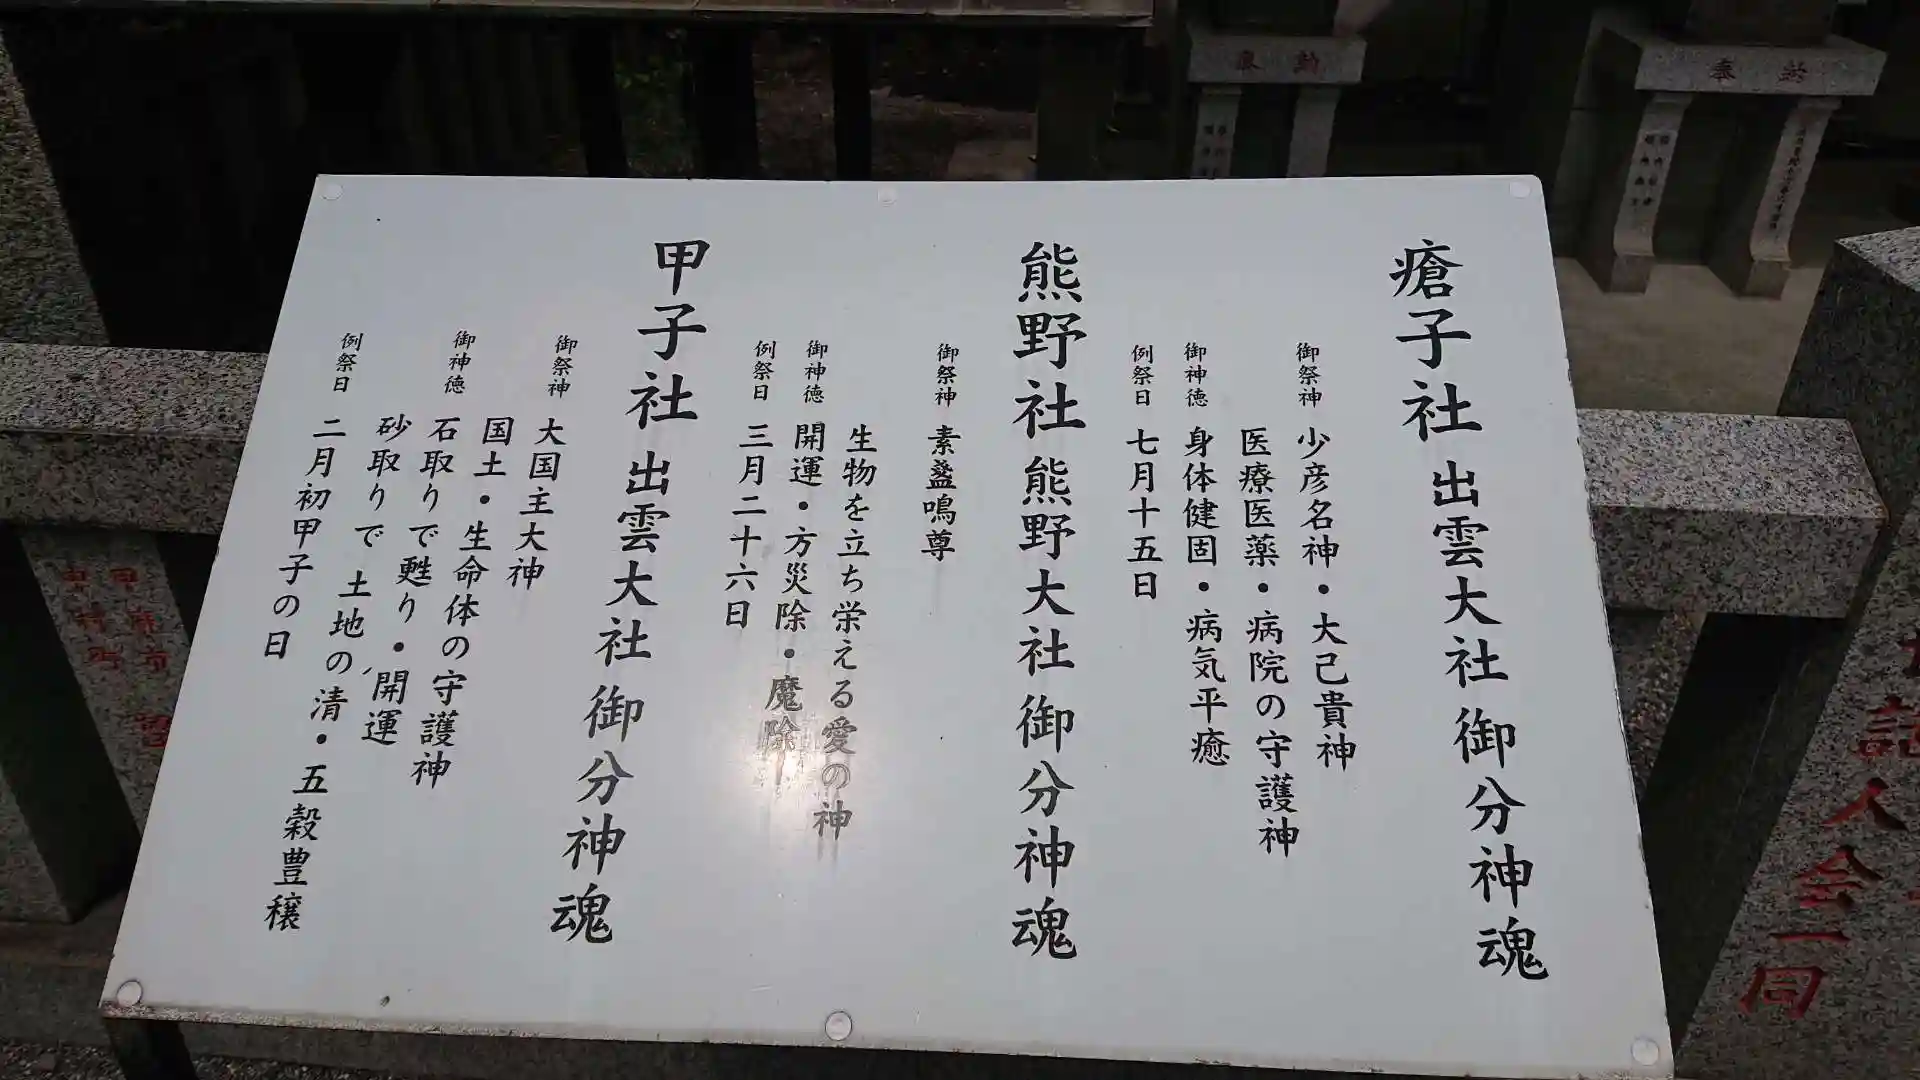 瘡子社 出雲大社 御分神魂
御祭神 少彦名神・大己貴神
医療医薬・病院の守護神
御神徳 身体健固・病気平癒
例祭日 七月十五日
熊野社 熊野大社 御分神魂
御祭神 素盞鳴尊
生物を立ち栄える愛の神
御神徳 開運・方災除・魔除
例祭日 三月二十六日
甲子社 出雲大社 御分神魂
御祭神 大国主大神
国土・生命体の守護神
御神徳 石取りで甦り・開運
砂取りで 土地の清・五穀豊穣
例祭日 二月初甲子の日
奉納
奉納
人会一同